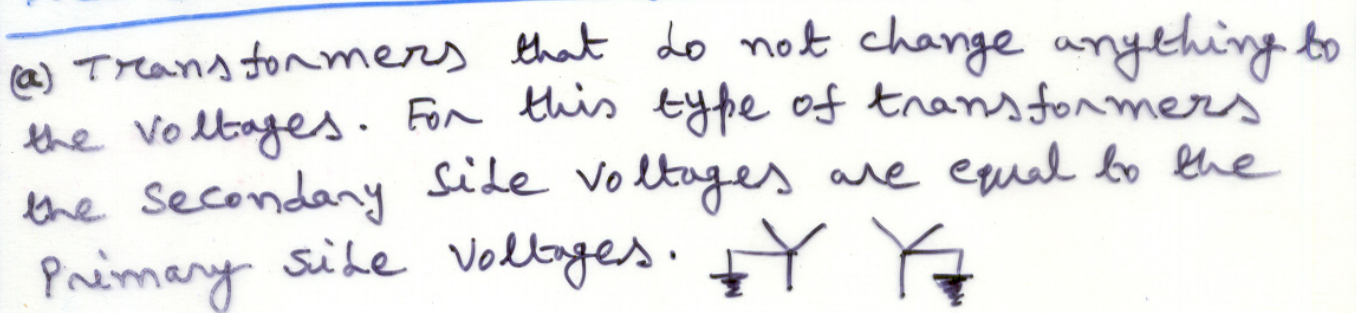 (a) Transformers that do not change anything to
the voltages. For this type of transformers
the secondary side voltages are equal to the
Primary side voltages.